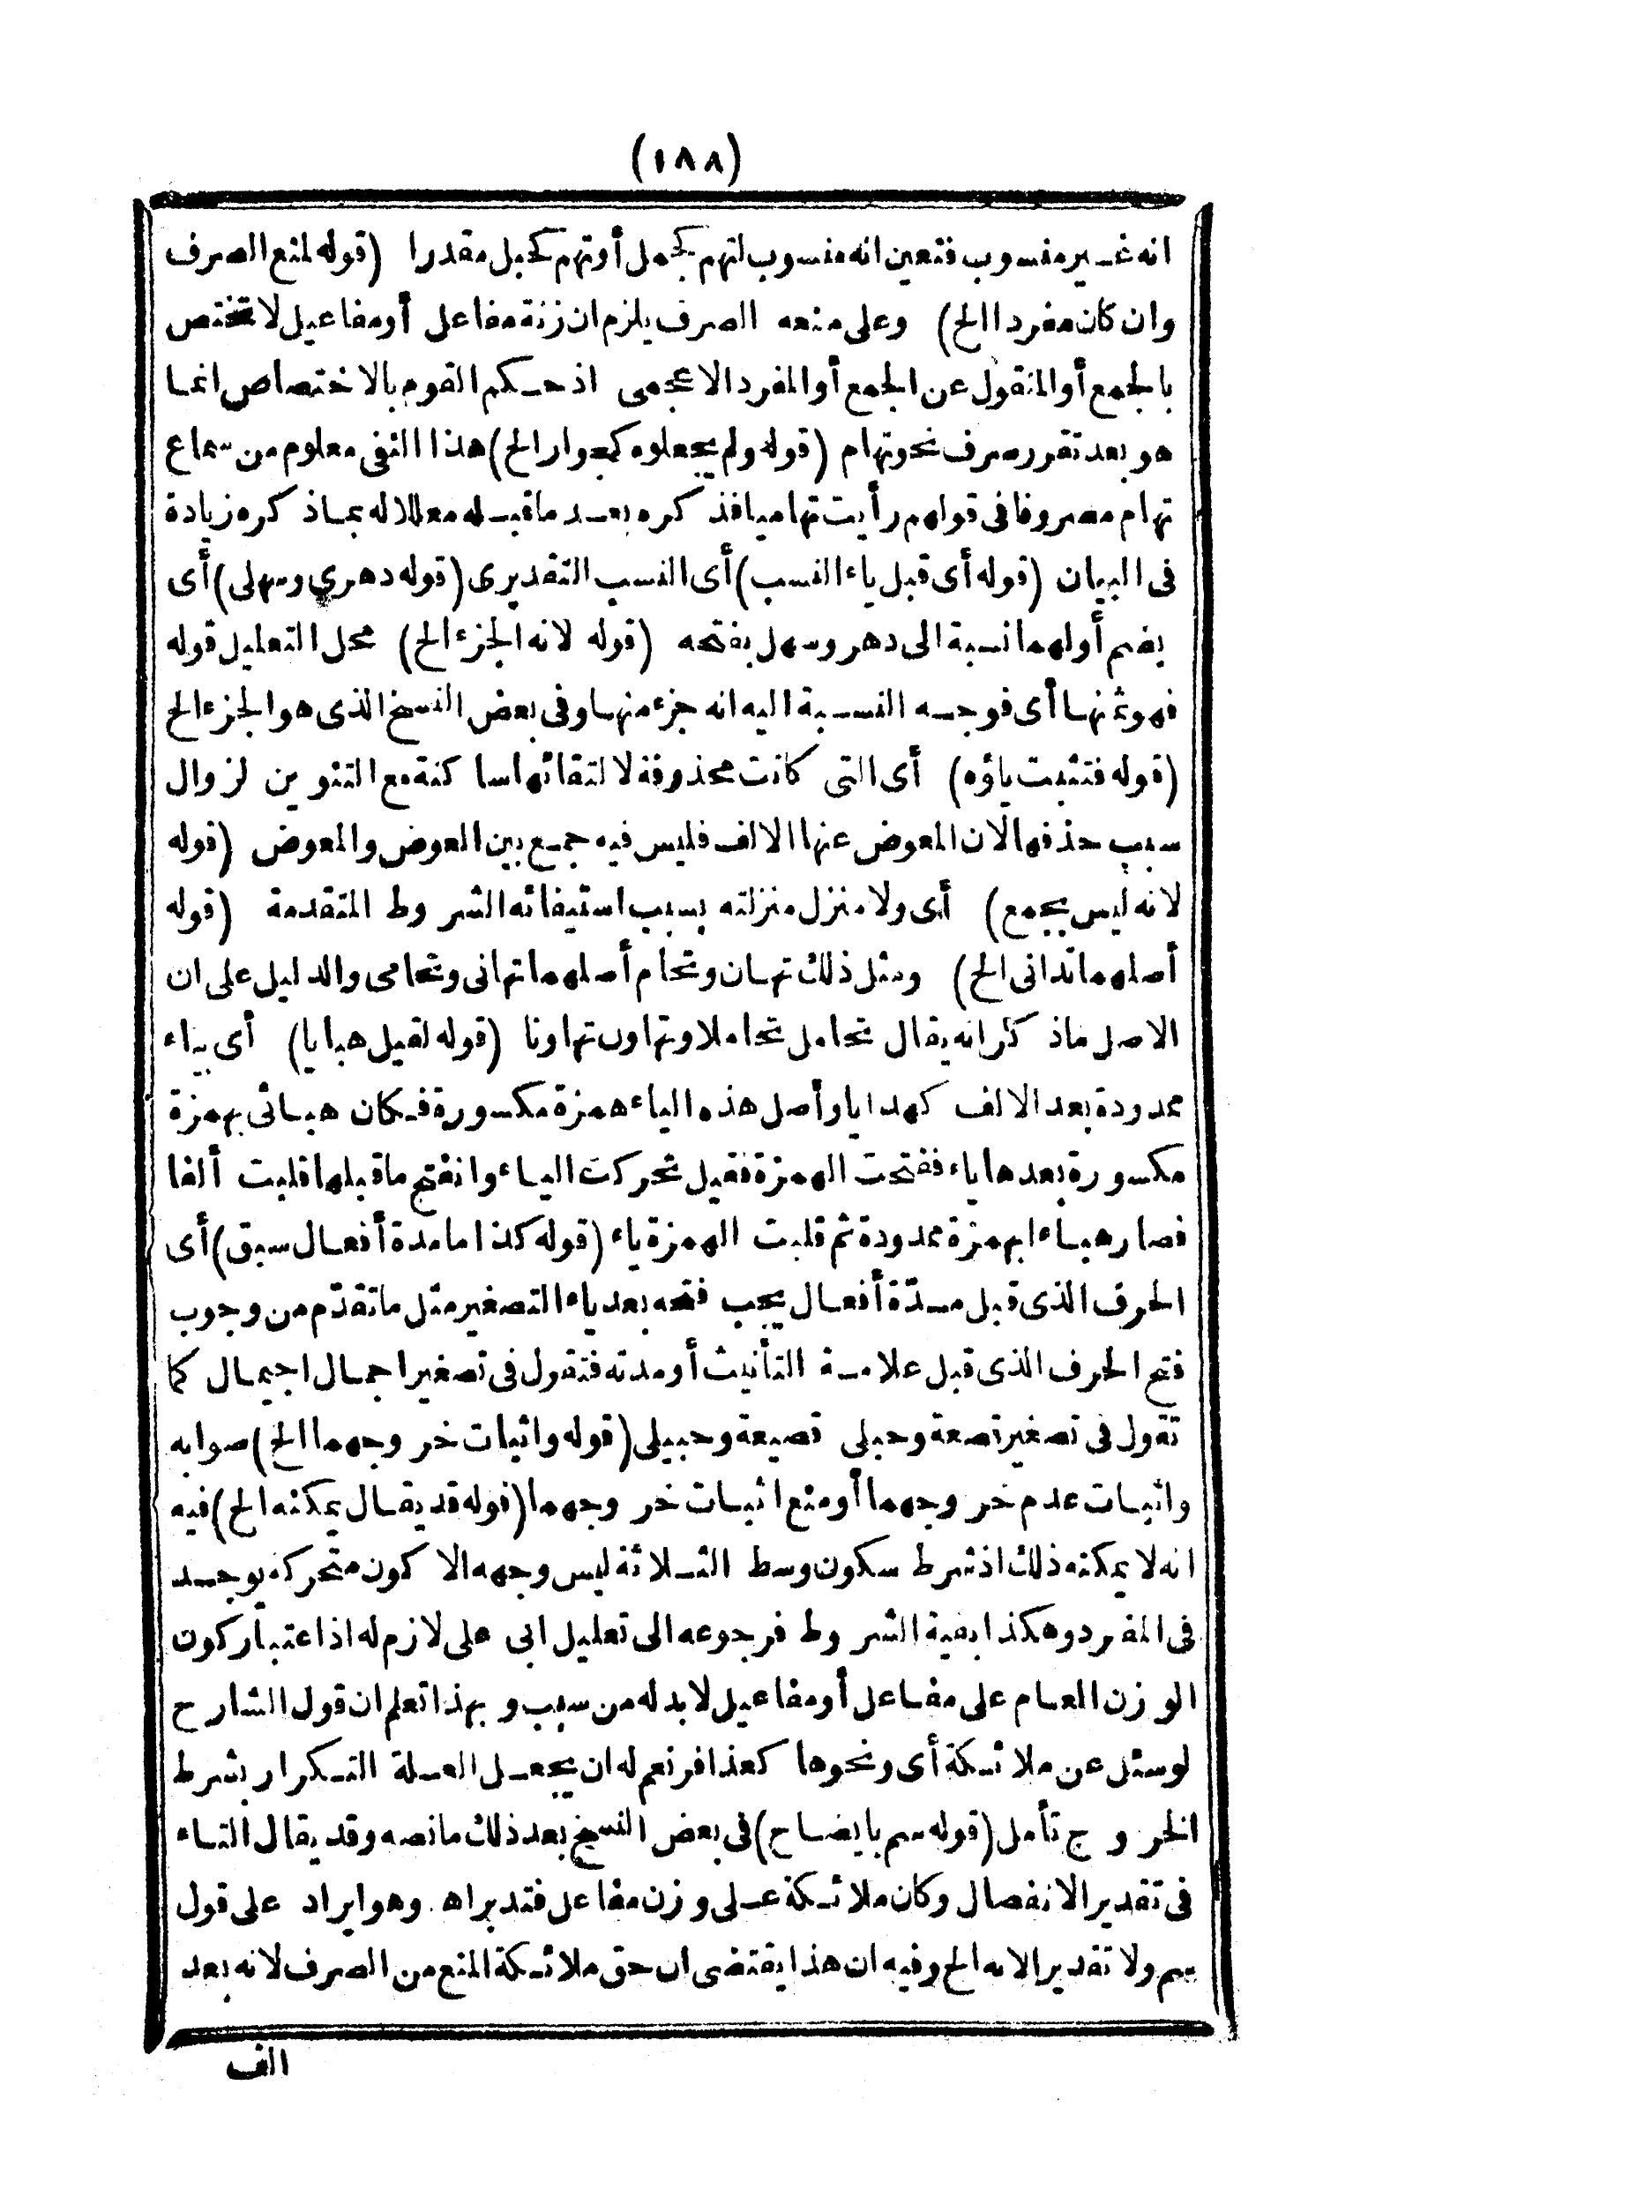 (١٨٨)
انه غير منسوب فتعين انه منسوب لتهم كجمل أو تهم كحبل مقدرا (قوله لمنع الصرف
وان كان مفردا الخ) وعلى منعه الصرف يلزم ان زنة مفاعل أو مفاعيل لا تختص
بالجمع أو المنقول عن الجمع أو المفرد الاعجمى اذ حكم القوم بالاختصاص انما
هو بعد تقرر صرف نحو تهام (قوله ولم يجعلوه كجوار الخ) هذا النفى معلوم من سماع
تهام مصروفا فى قولهم رأيت تهاميا فذكره بعد ما قبله معللا له بما ذكره زيادة
فى البيان (قوله أى قبل ياء النسب) أى النسب التقديرى (قوله دهرى وسهلى) أى
بضم أولهما نسبة الى دهر وسهل بفتحه (قوله لانه الجزء الخ) محل التعليل قوله
فهو ثمنها أى فوجه النسبة اليه انه جزء منها وفى بعض النسخ الذى هو الجزء الخ
(قوله فتثبت ياؤه) أى التى كانت محذوفة لالتقائها ساكنة مع التنوين لزوال
سبب حذفها لان المعوض عنها الالف فليس فيه جمع بين العوض والمعوض (قوله
لانه ليس بجمع) أى ولا منزل منزلته بسبب استيفائه الشروط المتقدمة (قوله
أصلهما تدانى الخ) ومثل ذلك تهان وتحام أصلهما تهانى وتحامى والدليل على ان
الاصل ماذكرانه يقال تحامل تحاملا وتهاون تهاونا (قوله لقيل هبايا) أى بياء
ممدودة بعد الالف كهدايا وأصل هذه الياء همزة مكسورة فكان هبائى بهمزة
مكسورة بعدها ياء ففتحت الهمزة فقيل تحركت الياء وانفتح ماقبلها قلبت ألفا
فصار هباءا بهمزة ممدودة ثم قلبت الهمزة ياء (قوله كذا ما مدة أفعال سبق) أى
الحرف الذى قبل مدّة أفعال يجب فتحه بعد ياء التصغير مثل ما تقدّم من وجوب
فتح الحرف الذى قبل علامة التأنيث أو مدته فتقول فى تصغير اجمال اجيمال كما
تقول فى تصغير قصعة وحبلى قصيعة وحبيلى (قوله واثبات خروجهما الخ) صوابه
واثبات عدم خروجهما أو منع اثبات خروجهما (قوله قد يقال يمكنه الخ) فيه
انه لا يمكنه ذلك اذ شرط سكون وسط الثلاثة ليس وجهه الا كون متحركه يوجد
فى المفرد وهكذا بقية الشروط فرجوعه الى تعليل ابى على لازم له اذ اعتبار كون
الوزن العام على مفاعل أو مفاعيل لا بد له من سبب وبهذا تعلم ان قول الشارح
لو سئل عن ملائكة أى ونحوها كعذافر نعم له ان يجعل العلة التكرار بشرط
الخروج تأمل (قوله سم بايضاح) فى بعض النسخ بعد ذلك ما نصه وقد يقال التاء
فى تقدير الانفصال وكان ملائكة على وزن مفاعل فتدبر اه وهو ايراد على قول
سم ولا تقدير الا به الخ وفيه ان هذا يقتضى ان حق ملائكة المنع من الصرف لانه بعد
الف